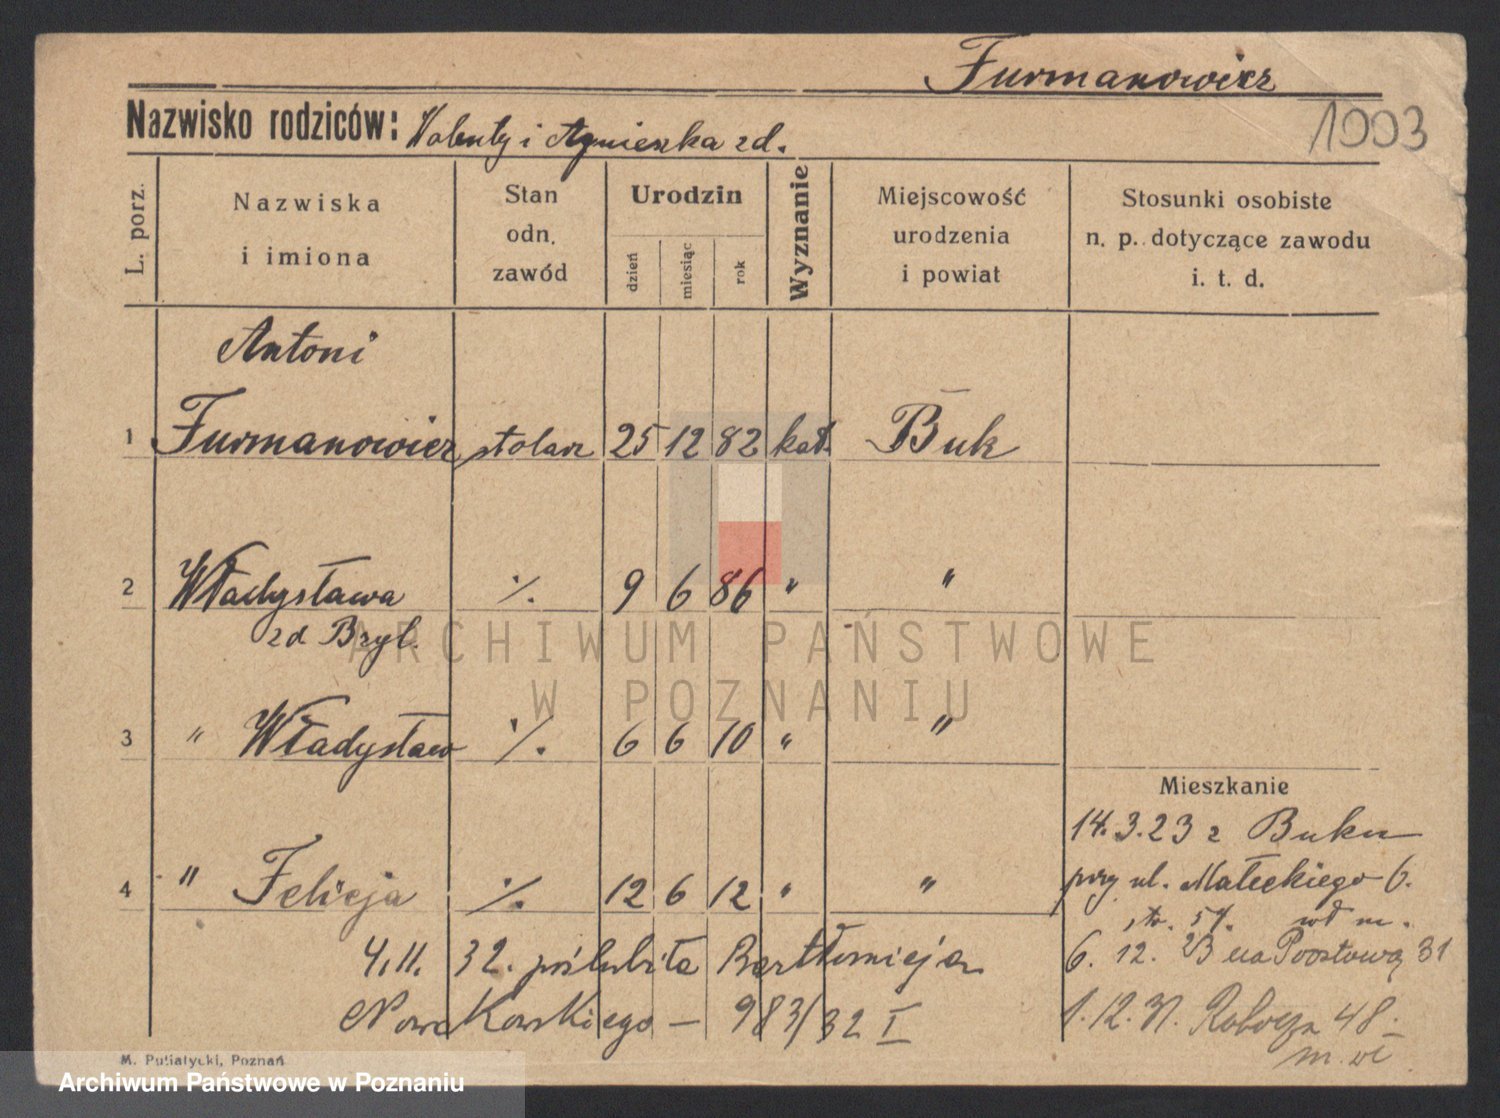 Furmanowicz
1003
Nazwisko rodziców: Walenty i Agnieszka zd.
L. porz.
Nazwiska
i imiona
Stan
odn.
zawód
Urodzin
dzień
miesiąc
rok
Wyznanie
Miejscowość
urodzenia
i powiat
Stosunki osobiste
n. p. dotyczące zawodu
i. t. d.
Antoni
1 Furmanowicz stolarz 25 12 82 kat. Buk
2 Władysława ·/. 9 6 86 " "
zd Bryl.
3 " Władysław ·/. 6 6 10 " "
Mieszkanie
14.3.23 z Buku
4 " Felicja ·/. 12 6 12 " "
przy ul. Małeckiego 6.
4.11. 32. poślubiła Bartłomieja
6. 12. 31
Nowakowskiego — 983/32 I
1.12.31. Robocza 48.
ARCHIWUM PAŃSTWOWE
W POZNANIU
M. Putiatycki, Poznań
Archiwum Państwowe w Poznaniu